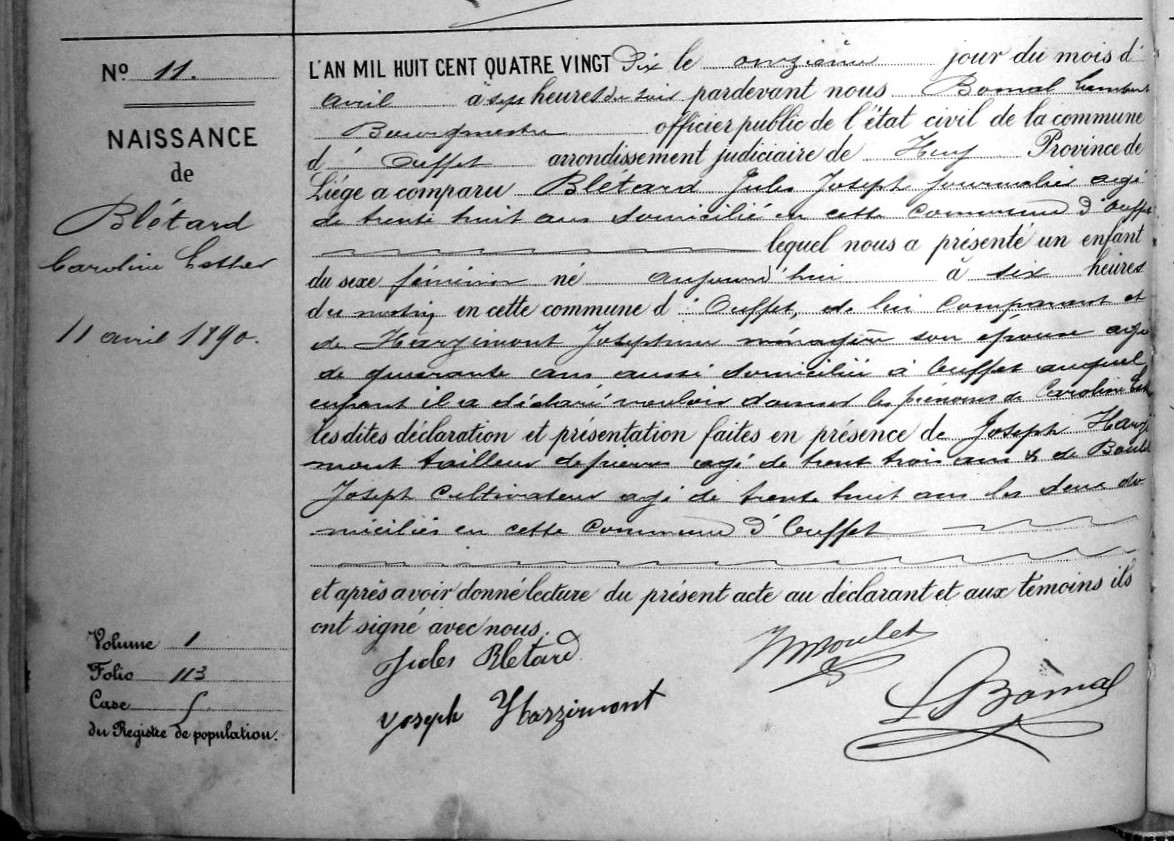 Nº 11.
NAISSANCE
de
Blétard
Caroline Esther
11 avril 1890.
Volume 1
Folio 113
Case
du Registre de population.
L'AN MIL HUIT CENT QUATRE VINGT Dix le onzième jour du mois d'
avril à sept heures du soir pardevant nous Bomal Lambert
Bourgmestre officier public de l'état civil de la commune
d' Ouffet arrondissement judiciaire de Huy Province de
Liége a comparu Blétard Jules Joseph journalier agé
de trente huit ans domicilié en cette commune d'Ouffet
lequel nous a présenté un enfant
du sexe féminin né aujourd'hui à six heures
du matin en cette commune d'Ouffet, de lui comparant et
de Harzimont Josephine ménagère son épouse agée
de quarante ans aussi domiciliée à Ouffet auquel
enfant il a déclaré vouloir donner les prénoms de Caroline Esther
les dites déclaration et présentation faites en présence de Joseph Harzi
mont tailleur de pierres agé de trente trois ans & de
Joseph cultivateur agé de trente huit ans les deux do
miciliés en cette commune d'Ouffet
et après avoir donné lecture du présent acte au déclarant et aux témoins ils
ont signé avec nous.
Jules Bletard
Joseph Harzimont
L Bomal